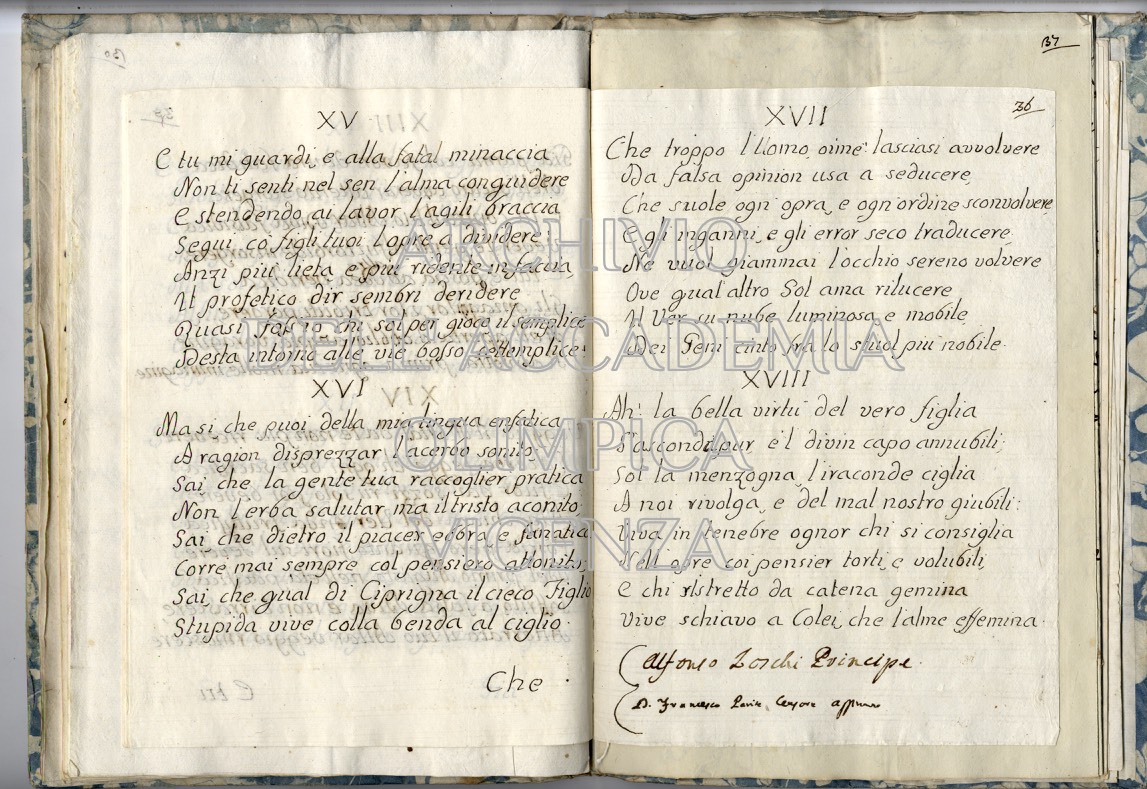 XV
E tu mi guardi, e alla fatal minaccia
Non ti senti nel sen l'alma conquidere
E stendendo ai lavor l'agili braccia
Segui co' figli tuoi l'opre a dividere;
Anzi più lieta e più ridente in faccia,
Il profetico dir sembri deridere
Quasi foss' io chi sol per gioco il semplice
Desta intorno alle vie bosso settemplice.
XVI
Ma si che puoi della mia lingua enfatica
A ragion disprezzar l'acerbo sonito,
Sai che la gente tua raccoglier pratica
Non l'erba salutar ma il tristo aconito.
Sai che dietro il piacer ebbra e fanatica
Corre mai sempre col pensiero attonito,
Sai che qual di Ciprigna il cieco Figlio
Stupida vive colla benda al ciglio.
Che
37
36
XVII
Che troppo l'Uomo oimè! lasciasi avvolvere
Da falsa opinion usa a seducere,
Che suole ogn' opra, e ogn'ordine sconvolvere,
E gli inganni, e gli error seco traducere.
Ne vuol giammai l'occhio sereno volvere
Ove qual altro Sol ama rilucere
Il Ver su nube luminosa e mobile,
Dei Geni cinto fra lo stuol più nobile.
XVIII
Ah! la bella virtù del vero figlia
S'asconda pur e 'l divin capo annubili;
Sol la menzogna l'iraconde ciglia
A noi rivolga, e del mal nostro giubili:
Viva in tenebre ognor chi si consiglia
Nell' opre coi pensier torti, e volubili,
E chi ristretto da catena gemina
Vive schiavo a Colei, che l'alme effemina.
Alfonso Loschi Principe.
D. Francesco Censore
ARCHIVIO
DELL'ACCADEMIA
OLIMPICA
VICENZA